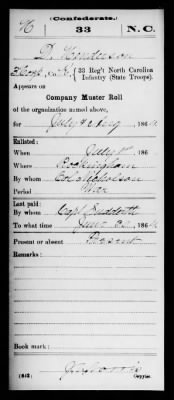 (Confederate.)
H 33 N.C.
D. Henderson
Co. 33 Reg't North Carolina
Infantry (State Troops).
Appears on
Company Muster Roll
of the organization named above,
for July & Aug, 1864.
Enlisted:
When July 186
Where Rockingham
By whom Col Nicholson
Period War
Last paid:
By whom Capt Sudderth
To what time June 30, 1864.
Present or absent Present
Remarks:
Book mark:
(642) Copyist.